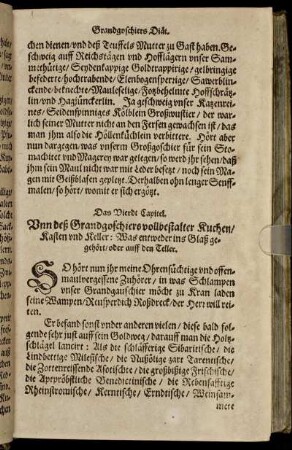 Grandgoschiers Diät.
chen dienen/vnd deß Teuffels Mutter zu Gast haben. Ge-
schweig auff Reichstägen vnd Hofflägern vnser Sam-
methürige/ Seydenkappige Goldtrappirige/ gelbringige
befederte/hochtrabende/ Elenbogensperrige/ Sawrblin-
ckende beknechte/Mauleselige/Fotzbehelmte Hoffschrät-
lin/vnd Hagjunckerlin. Ja geschweig vnser Katzenrei-
nes/ Seidenspinniges Kölblein Großwustier/ der war-
lich seiner Mutter nicht an den Fersen gewachsen ist/ daß
man jhm also die Höllenküchlein verbittere. Hört aber
nun dargegen/was vnserm Großgoschier für sein Sto-
machitet vnd Magerey war gelegen/so werd jhr sehen/daß
jhm sein Maul nicht war mit Leder besetzt/ noch sein Ma-
gen mit Geißblasen gepletzt. Derhalben ohn lenger Senff-
malen/so hört/ womit er sich ergötzt.
Das Vierdt Capitel.
Vnn deß Grandgoschiers vollbestalter Kuchen/
Kasten vnd Keller: Was entweder ins Glaß ge-
gehört/oder auff den Teller.
SO hört nun jhr meine Ohrenfüchtige vnd offen-
maulvergessene Zuhörer/ in was Schlampen
vnser Grandgauschier möcht zu Kran laden
seine Wampen/Reusperdich Roßdreck/der Herr will rei-
ten.
Er befand sonst vnder anderen vielen/ diese bald fol-
gende sehr just auff sein Goldwog/ darauff man die Holtz-
schlägel lancirt: Als die schläfferige Sibaritische/ die
Lindbettige Milesische/ die Nußölige zare Tarentische/
die Zottenreissende Asotische/ die großbißige Frisische/
die Apepröbstliche Benedictinische/ die Rebensafftige
Rheinstrowische/ Kerntische/ Erndtische/ Weinsam-
mere